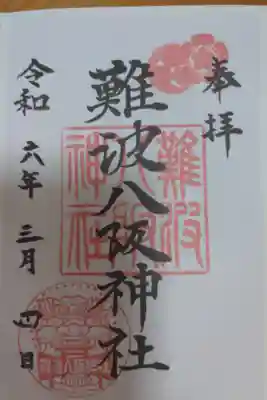 奉拝
難波八阪神社
令和六年三月四日
難波
八阪
神社